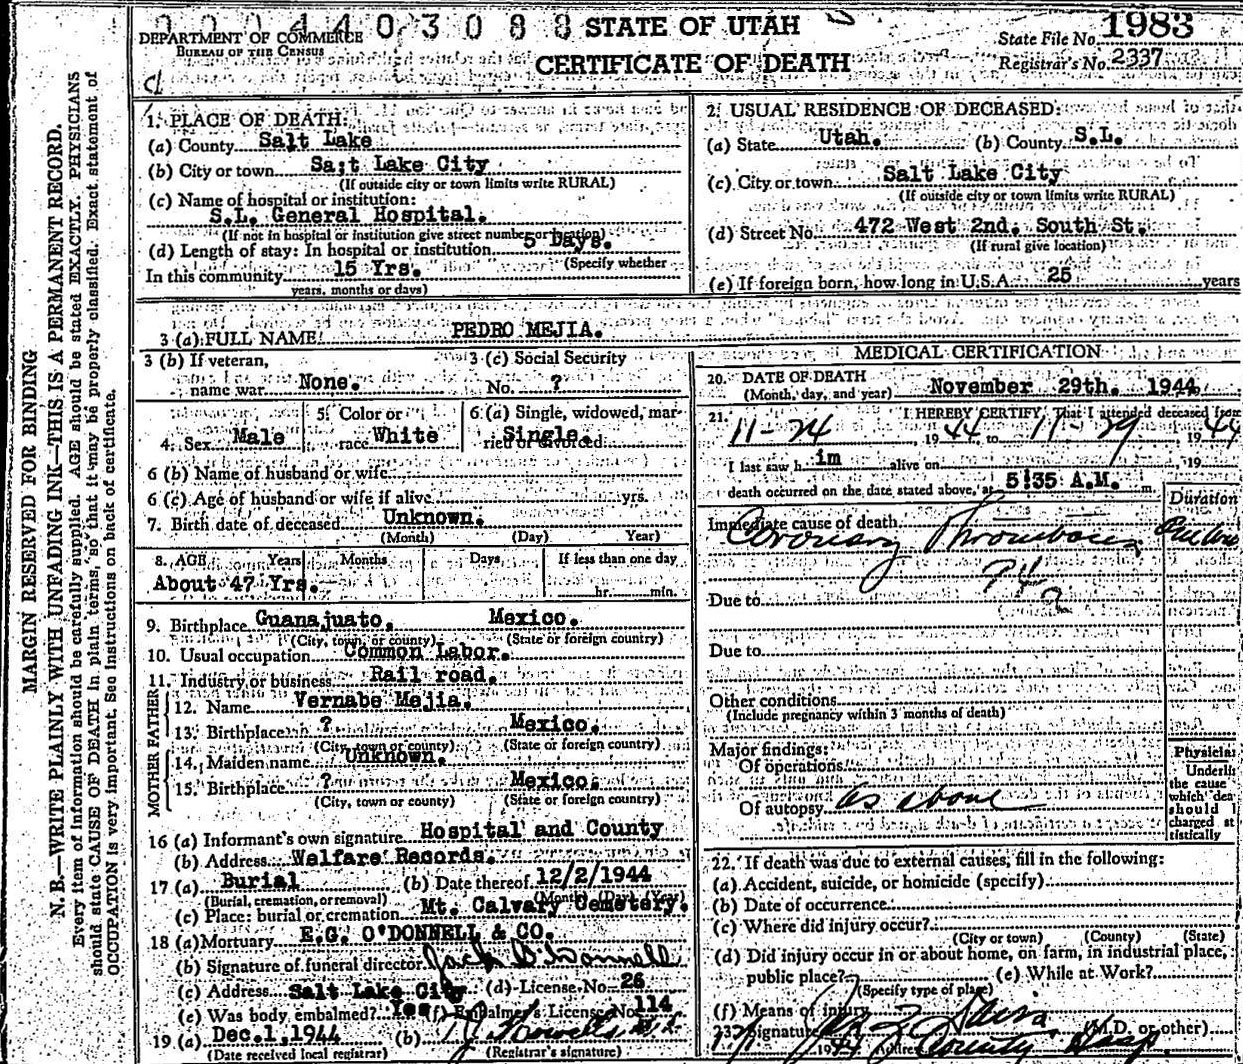 MARGIN RESERVED FOR BINDING
N. B.—WRITE PLAINLY WITH UNFADING INK—THIS IS A PERMANENT RECORD.
Every item of information should be carefully supplied. AGE should be stated EXACTLY. PHYSICIANS
should state CAUSE OF DEATH in plain terms, so that it may be properly classified. Exact statement of
OCCUPATION is very important. See Instructions on back of certificate.
DEPARTMENT OF COMMERCE
BUREAU OF THE CENSUS
0004403088
STATE OF UTAH
CERTIFICATE OF DEATH
State File No. 1983
Registrar's No. 2337
1. PLACE OF DEATH:
(a) County Salt Lake
(b) City or town Sa;t Lake City
(If outside city or town limits write RURAL)
(c) Name of hospital or institution:
S.L. General Hospital.
(If not in hospital or institution give street number or location)
(d) Length of stay: In hospital or institution 5 Days.
(Specify whether
In this community 15 Yrs.
years, months or days)
2. USUAL RESIDENCE OF DECEASED:
(a) State Utah. (b) County S.L.
(c) City or town Salt Lake City
(If outside city or town limits write RURAL)
(d) Street No. 472 West 2nd. South St.
(If rural give location)
(e) If foreign born, how long in U.S.A. 25 years
3 (a) FULL NAME PEDRO MEJIA.
3 (b) If veteran,
name war None.
3 (c) Social Security
No. ?
4. Sex Male
5. Color or
race White
6 (a) Single, widowed, mar-
ried or divorced: Single.
6 (b) Name of husband or wife
6 (c) Age of husband or wife if alive yrs.
7. Birth date of deceased Unknown.
(Month) (Day) Year)
8. AGE Years Months Days If less than one day
About 47 Yrs. hr. min.
9. Birthplace Guanajuato. Mexico.
(City, town, or county) (State or foreign country)
10. Usual occupation Common Labor.
11. Industry or business Rail road.
FATHER
12. Name Vernabe Mejia.
13. Birthplace ? Mexico.
(City, town or county) (State or foreign country)
MOTHER
14. Maiden name Unknown.
15. Birthplace ? Mexico.
(City, town or county) (State or foreign country)
16 (a) Informant's own signature Hospital and County
(b) Address Welfare Records.
17 (a) Burial (b) Date thereof 12/2/1944
(Burial, cremation, or removal) (Month) (Day) (Year)
(c) Place: burial or cremation Mt. Calvary Cemetery.
18 (a) Mortuary E.G. O'DONNELL & CO.
(b) Signature of funeral director Jack O'Donnell
(c) Address Salt Lake City (d) License No. 26
(e) Was body embalmed? Yes (f) Embalmer's License No. 114
19 (a) Dec.1,1944 (b)
(Date received local registrar) (Registrar's signature)
MEDICAL CERTIFICATION
20. DATE OF DEATH
(Month, day, and year) November 29th. 1944
21. I HEREBY CERTIFY, That I attended deceased from
11-24, 1944 to 11-29, 1944
I last saw h im alive on , 19
death occurred on the date stated above, at 5:35 A.M. m.
Duration
Immediate cause of death
Coronary Thrombosis
94a
Due to
Due to
Other conditions
(Include pregnancy within 3 months of death)
Major findings:
Of operations
Of autopsy as above
Physician
Underli
the cause
which dea
should
charged st
tistically
22. If death was due to external causes, fill in the following:
(a) Accident, suicide, or homicide (specify)
(b) Date of occurrence
(c) Where did injury occur?
(City or town) (County) (State)
(d) Did injury occur in or about home, on farm, in industrial place,
public place? (e) While at Work?
(Specify type of place)
(f) Means of injury
23. Signature (M.D. or other)
1944 Address County Hosp